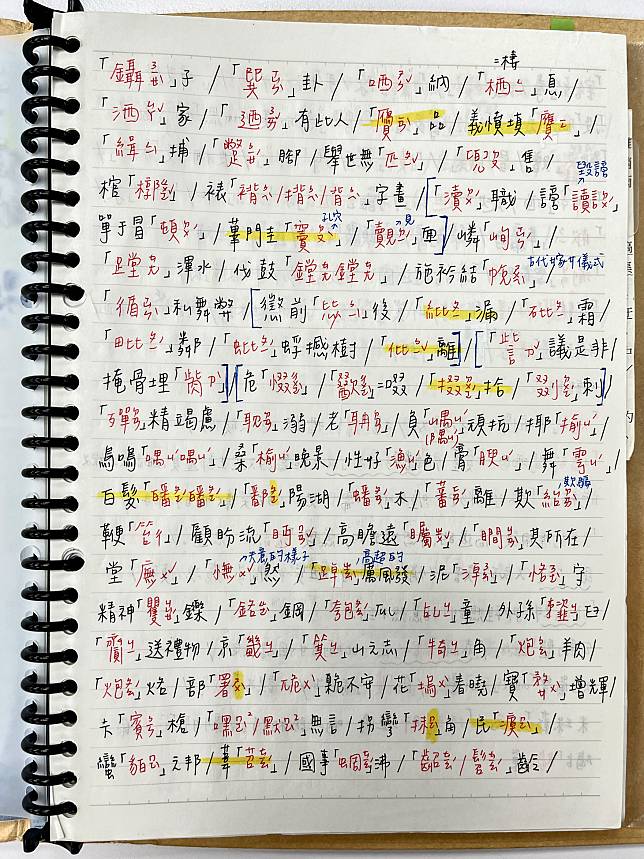 =棲
「鑷ㄋㄧㄝˋ」子 / 「巽ㄒㄩㄣˋ」卦 / 「哂ㄕㄣˇ」納 / 「栖ㄑㄧ」息 /
「洒ㄙㄚˇ」家 / 「迺ㄋㄞˇ」有此人 / 「贗ㄧㄢˋ」品 / 義憤填「膺ㄧㄥ」 /
「緝ㄑㄧˋ」捕 / 「蹩ㄅㄧㄝˊ」腳 / 舉世無「匹ㄆㄧˇ」 / 「兜ㄉㄡ」售 /
毀謗
棺「槨ㄍㄨㄛˇ」 / 裱「褙ㄅㄟˋ/揹ㄅㄟ/背ㄅㄟ」字畫 / 「瀆ㄉㄨˊ」職 / 謗「讀ㄉㄨˊ」
孔穴 見
單于冒「頓ㄉㄨˊ」 / 蓽門圭「竇ㄉㄡˋ」 / 「覿ㄉㄧˊ」面 / 嶙「峋ㄒㄩㄣˊ」 /
古代嫁女儀式
「蹚ㄊㄤ」渾水 / 伐鼓「鏜ㄊㄤ鏜ㄊㄤ」 / 施衿結「帨ㄕㄨㄟˋ」
「徇ㄒㄩㄣˋ」私舞弊 / 懲前「毖ㄅㄧˋ」後 / 「紕ㄆㄧ」漏 / 「砒ㄆㄧ」霜 /
「毗ㄆㄧˊ」鄰 / 「蚍ㄆㄧˊ」蜉撼樹 / 「仳ㄆㄧˇ」離 / 「訾ㄗˇ」議是非 /
掩骨埋「胔ㄗˋ」 / 危「惙ㄔㄨㄛˋ」 / 「歠ㄔㄨㄛˋ」=啜 / 「掇ㄉㄨㄛˊ」拾 / 「剟ㄉㄨㄛˊ」刺 /
「殫ㄉㄢ」精竭慮 / 「耽ㄉㄢ」溺 / 老「聃ㄉㄢ」 / 負「嵎ㄩˊ(隅ㄩˊ)」頑抗 / 揶「揄ㄩˊ」 /
鳥鳴「喁ㄩˊ喁ㄩˊ」 / 桑「榆ㄩˊ」晚景 / 性好「漁ㄩˊ」色 / 膏「腴ㄩˊ」 / 舞「雩ㄩˊ」 /
欺騙
白髮「皤ㄆㄛˊ皤ㄆㄛˊ」 / 「鄱ㄆㄛˊ」陽湖 / 「蟠ㄆㄢˊ」木 / 「藩ㄈㄢˊ」離 / 欺「紿ㄉㄞˋ」 /
鞭「笞ㄔ」 / 顧盼流「眄ㄇㄧㄢˇ」 / 高瞻遠「矚ㄓㄨˇ」 / 「瞷ㄐㄧㄢˋ」其所在 /
失意的樣子 高超的
堂「廡ㄨˇ」 / 「憮ㄨˇ」然 / 「踔ㄓㄨㄛˊ」厲風發 / 泥「淖ㄋㄠˋ」 / 「恪ㄎㄜˋ」守
精神「矍ㄐㄩㄝˊ」鑠 / 「鉻ㄍㄜˋ」鋼 / 「匏ㄆㄠˊ」瓜 / 「乩ㄐㄧ」童 / 外孫「齏ㄐㄧ」臼 /
「齎ㄐㄧ」送禮物 / 京「畿ㄐㄧ」 / 「箕ㄐㄧ」山之志 / 「犄ㄐㄧ」角 / 「炮ㄅㄠ」羊肉 /
「炮ㄆㄠˊ」烙 / 部「署ㄕㄨˋ」 / 「阢ㄨˋ」臲不安 / 花「塢ㄨˋ」春曉 / 寶「婺ㄨˋ」增輝 /
卡「賓ㄅㄧㄣ」槍 / 「嘿ㄇㄛˋ/默ㄇㄛˋ」無言 / 拐彎「抹ㄇㄛˋ」角 / 民「瘼ㄇㄛˋ」 /
蠻「貊ㄇㄛˋ」之邦 / 葦「苕ㄊㄧㄠˊ」 / 國事「蜩ㄊㄧㄠˊ」沸 / 「齠ㄊㄧㄠˊ/髫ㄊㄧㄠˊ」齡 /